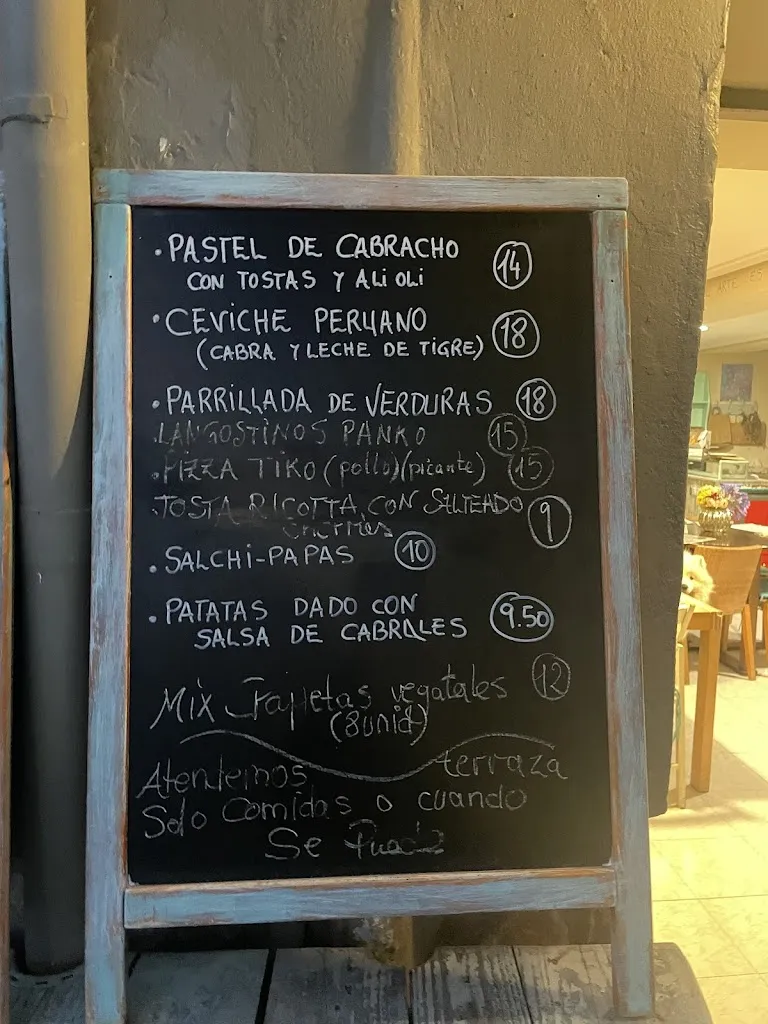 · PASTEL DE CABRACHO 14
CON TOSTAS Y ALiOLi
· CEVICHE PERUANO 18
(CABRA Y LECHE DE TiGRE)
· PARRiLLADA DE VERDURAS 18
· LANGOSTINOS PANKO 15
· PIZZA TIKO (pollo)(picante) 15
· TOSTA RICOTTA CON SALTEADO 9
· SALCHi-PAPAS 10
· PATATAS DADO CON 9.50
SALSA DE CABRALES
Mix Tapletas vegatales 12
(8unid)
Atendemos terraza
Solo Comidas o cuando
Se Pueda
ARTE ES